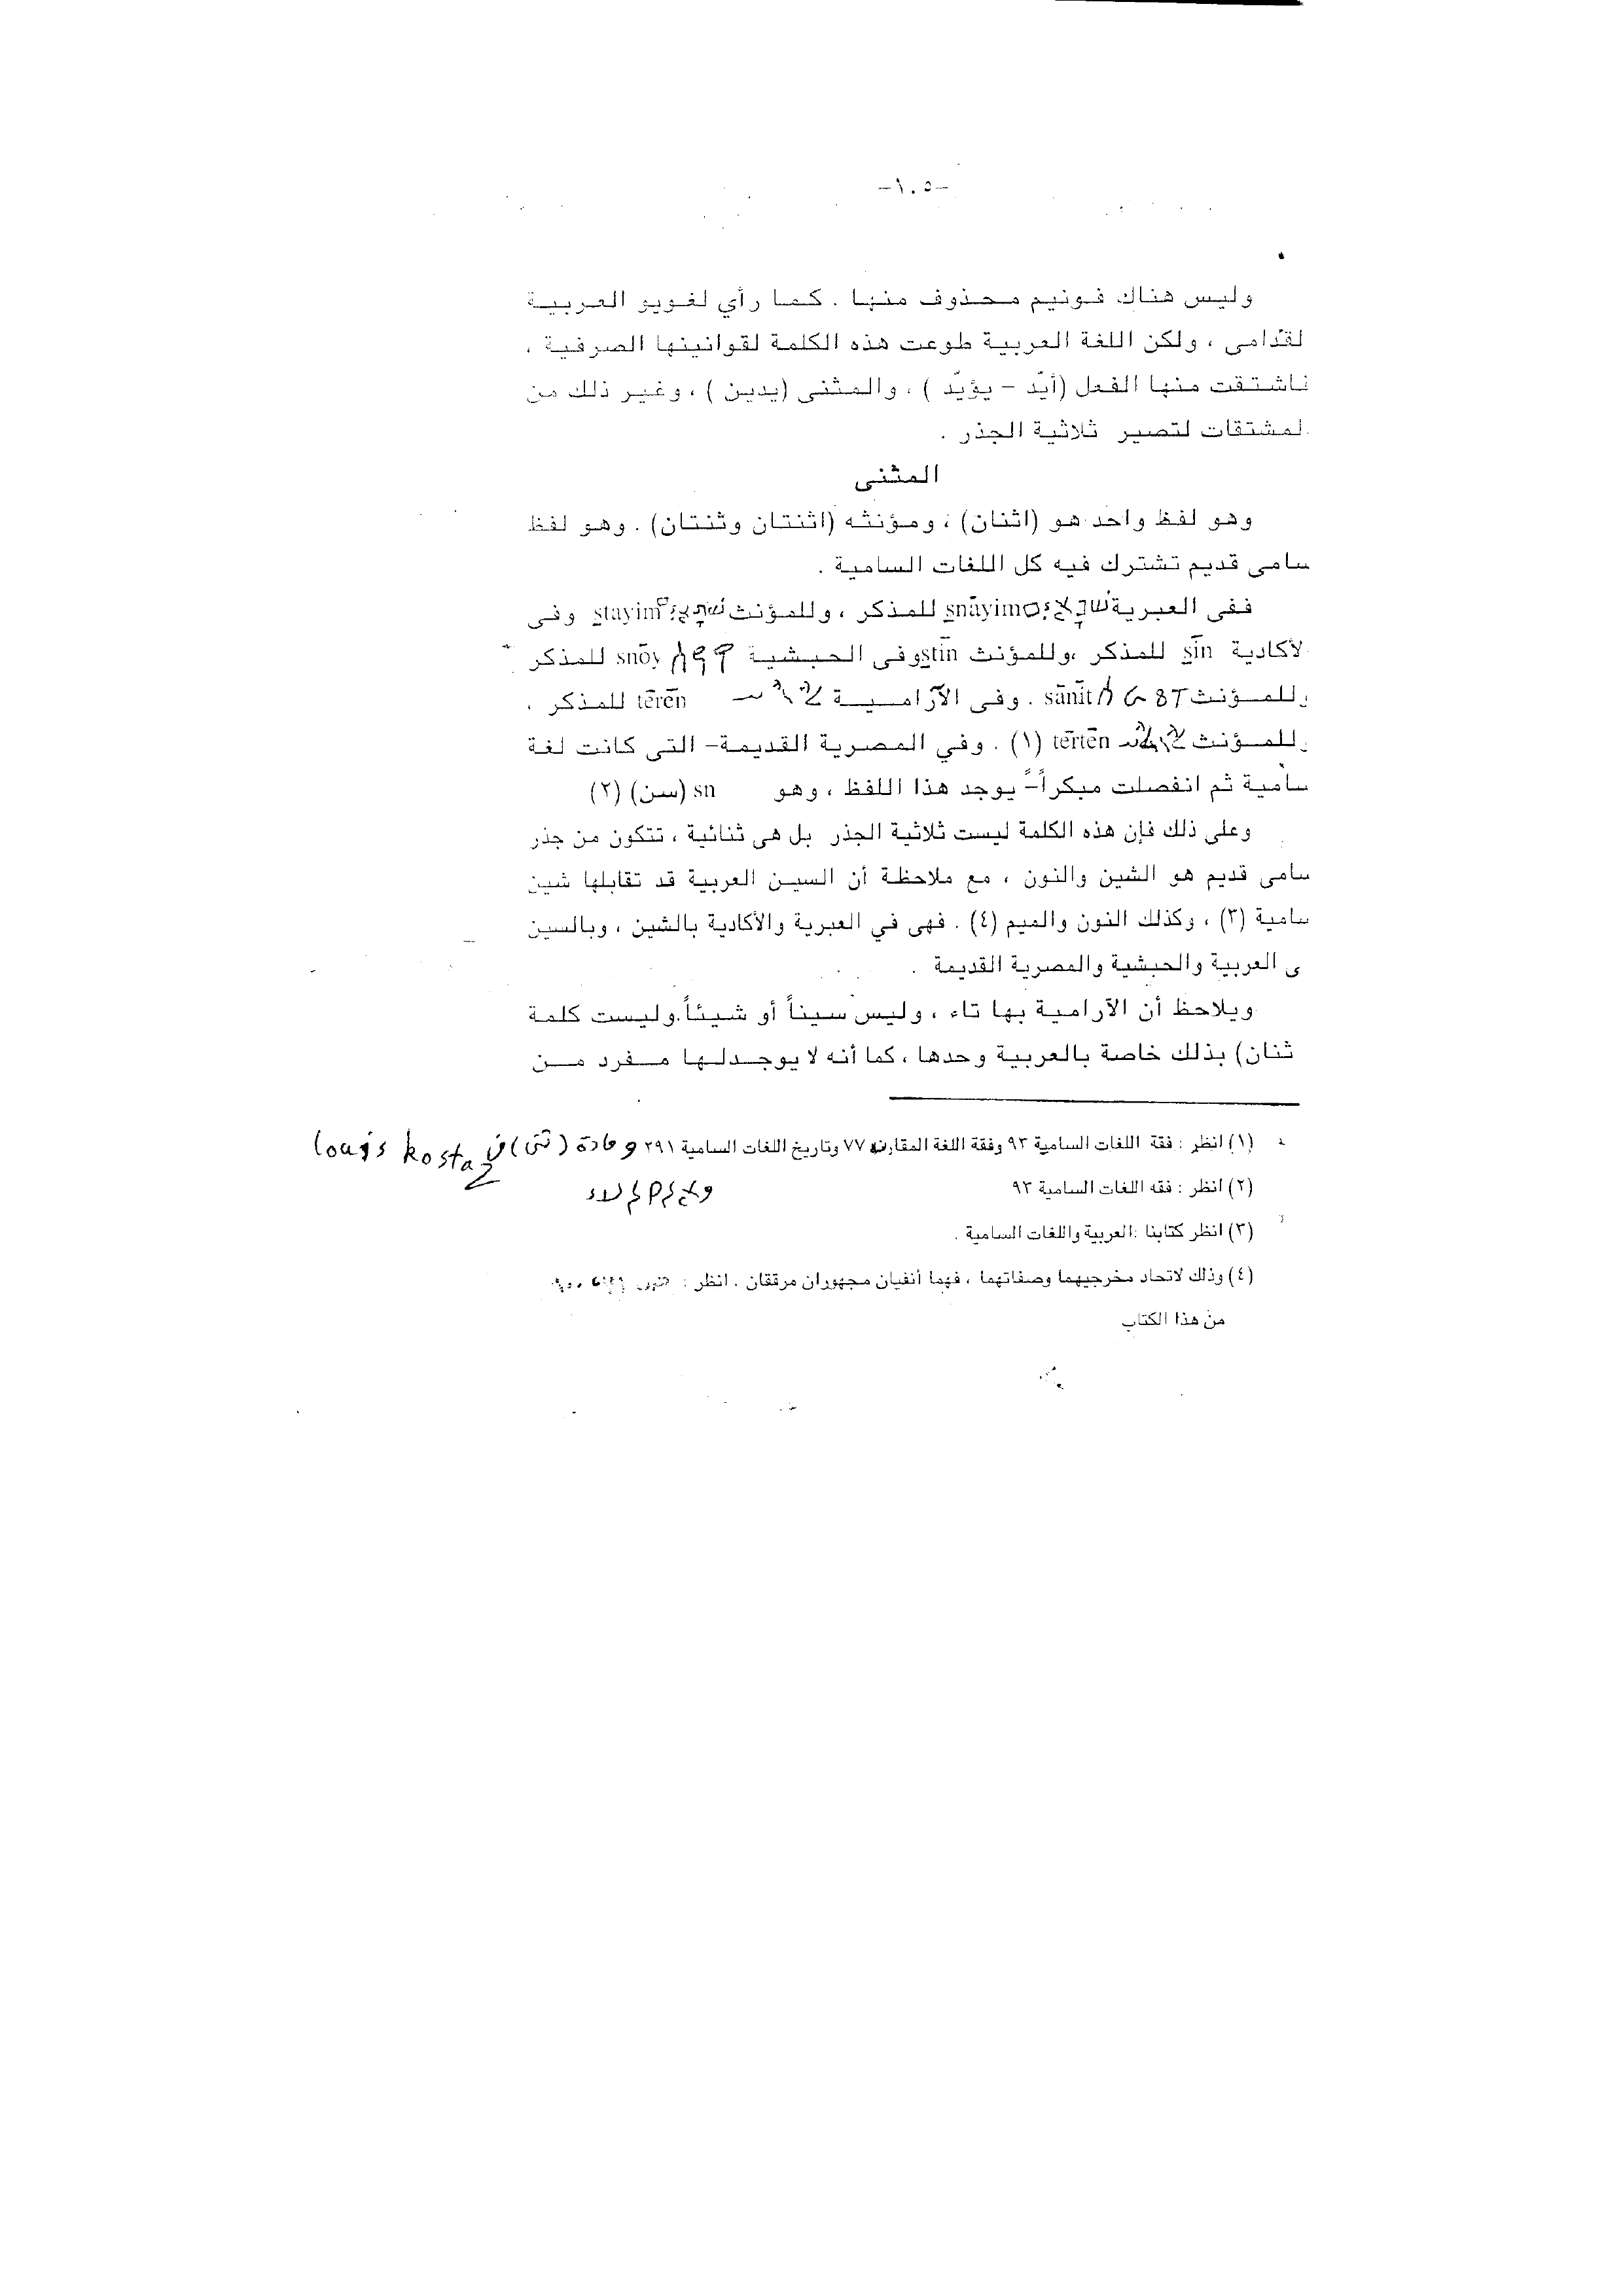 -١٠٥-
وليس هناك فونيم محذوف منها . كما رأي لغويو العربية
لقدامى ، ولكن اللغة العربية طوعت هذه الكلمة لقوانينها الصرفية ،
فاشتقت منها الفعل (أيّد - يؤيّد ) ، والمثنى (يدين ) ، وغير ذلك من
لمشتقات لتصير ثلاثية الجذر .
المثنى
وهو لفظ واحد هو (اثنان) ، ومؤنثه (اثنتان وثنتان) . وهو لفظ
سامى قديم تشترك فيه كل اللغات السامية .
ففى العبرية snāyim للمذكر ، وللمؤنث stayim وفى
لأكادية sīn للمذكر ،وللمؤنث stīn وفى الحبشية snōy للمذكر
وللمؤنث sānīt . وفى الآرامية tērēn للمذكر ،
وللمؤنث tērtēn (١) . وفي المصرية القديمة- التى كانت لغة
سامية ثم انفصلت مبكراً- يوجد هذا اللفظ ، وهو sn (سن) (٢)
وعلى ذلك فإن هذه الكلمة ليست ثلاثية الجذر بل هى ثنائية ، تتكون من جذر
سامى قديم هو الشين والنون ، مع ملاحظة أن السين العربية قد تقابلها شين
سامية (٣) ، وكذلك النون والميم (٤) . فهى في العبرية والأكادية بالشين ، وبالسين
ى العربية والحبشية والمصرية القديمة .
ويلاحظ أن الآرامية بها تاء ، وليس سيناً أو شيئاً.وليست كلمة
ثنان) بذلك خاصة بالعربية وحدها ، كما أنه لا يوجدلها مفرد من
(١) انظر : فقة اللغات السامية ٩٣ وفقة اللغة المقارنة ٧٧ وتاريخ اللغات السامية ٢٩١ ومادة (ثنى) في louis kostaz
(٢) انظر : فقه اللغات السامية ٩٣
(٣) انظر كتابنا :العربية واللغات السامية .
(٤) وذلك لاتحاد مخرجيهما وصفاتهما ، فهما أنفيان مجهوران مرققان . انظر :
من هذا الكتاب